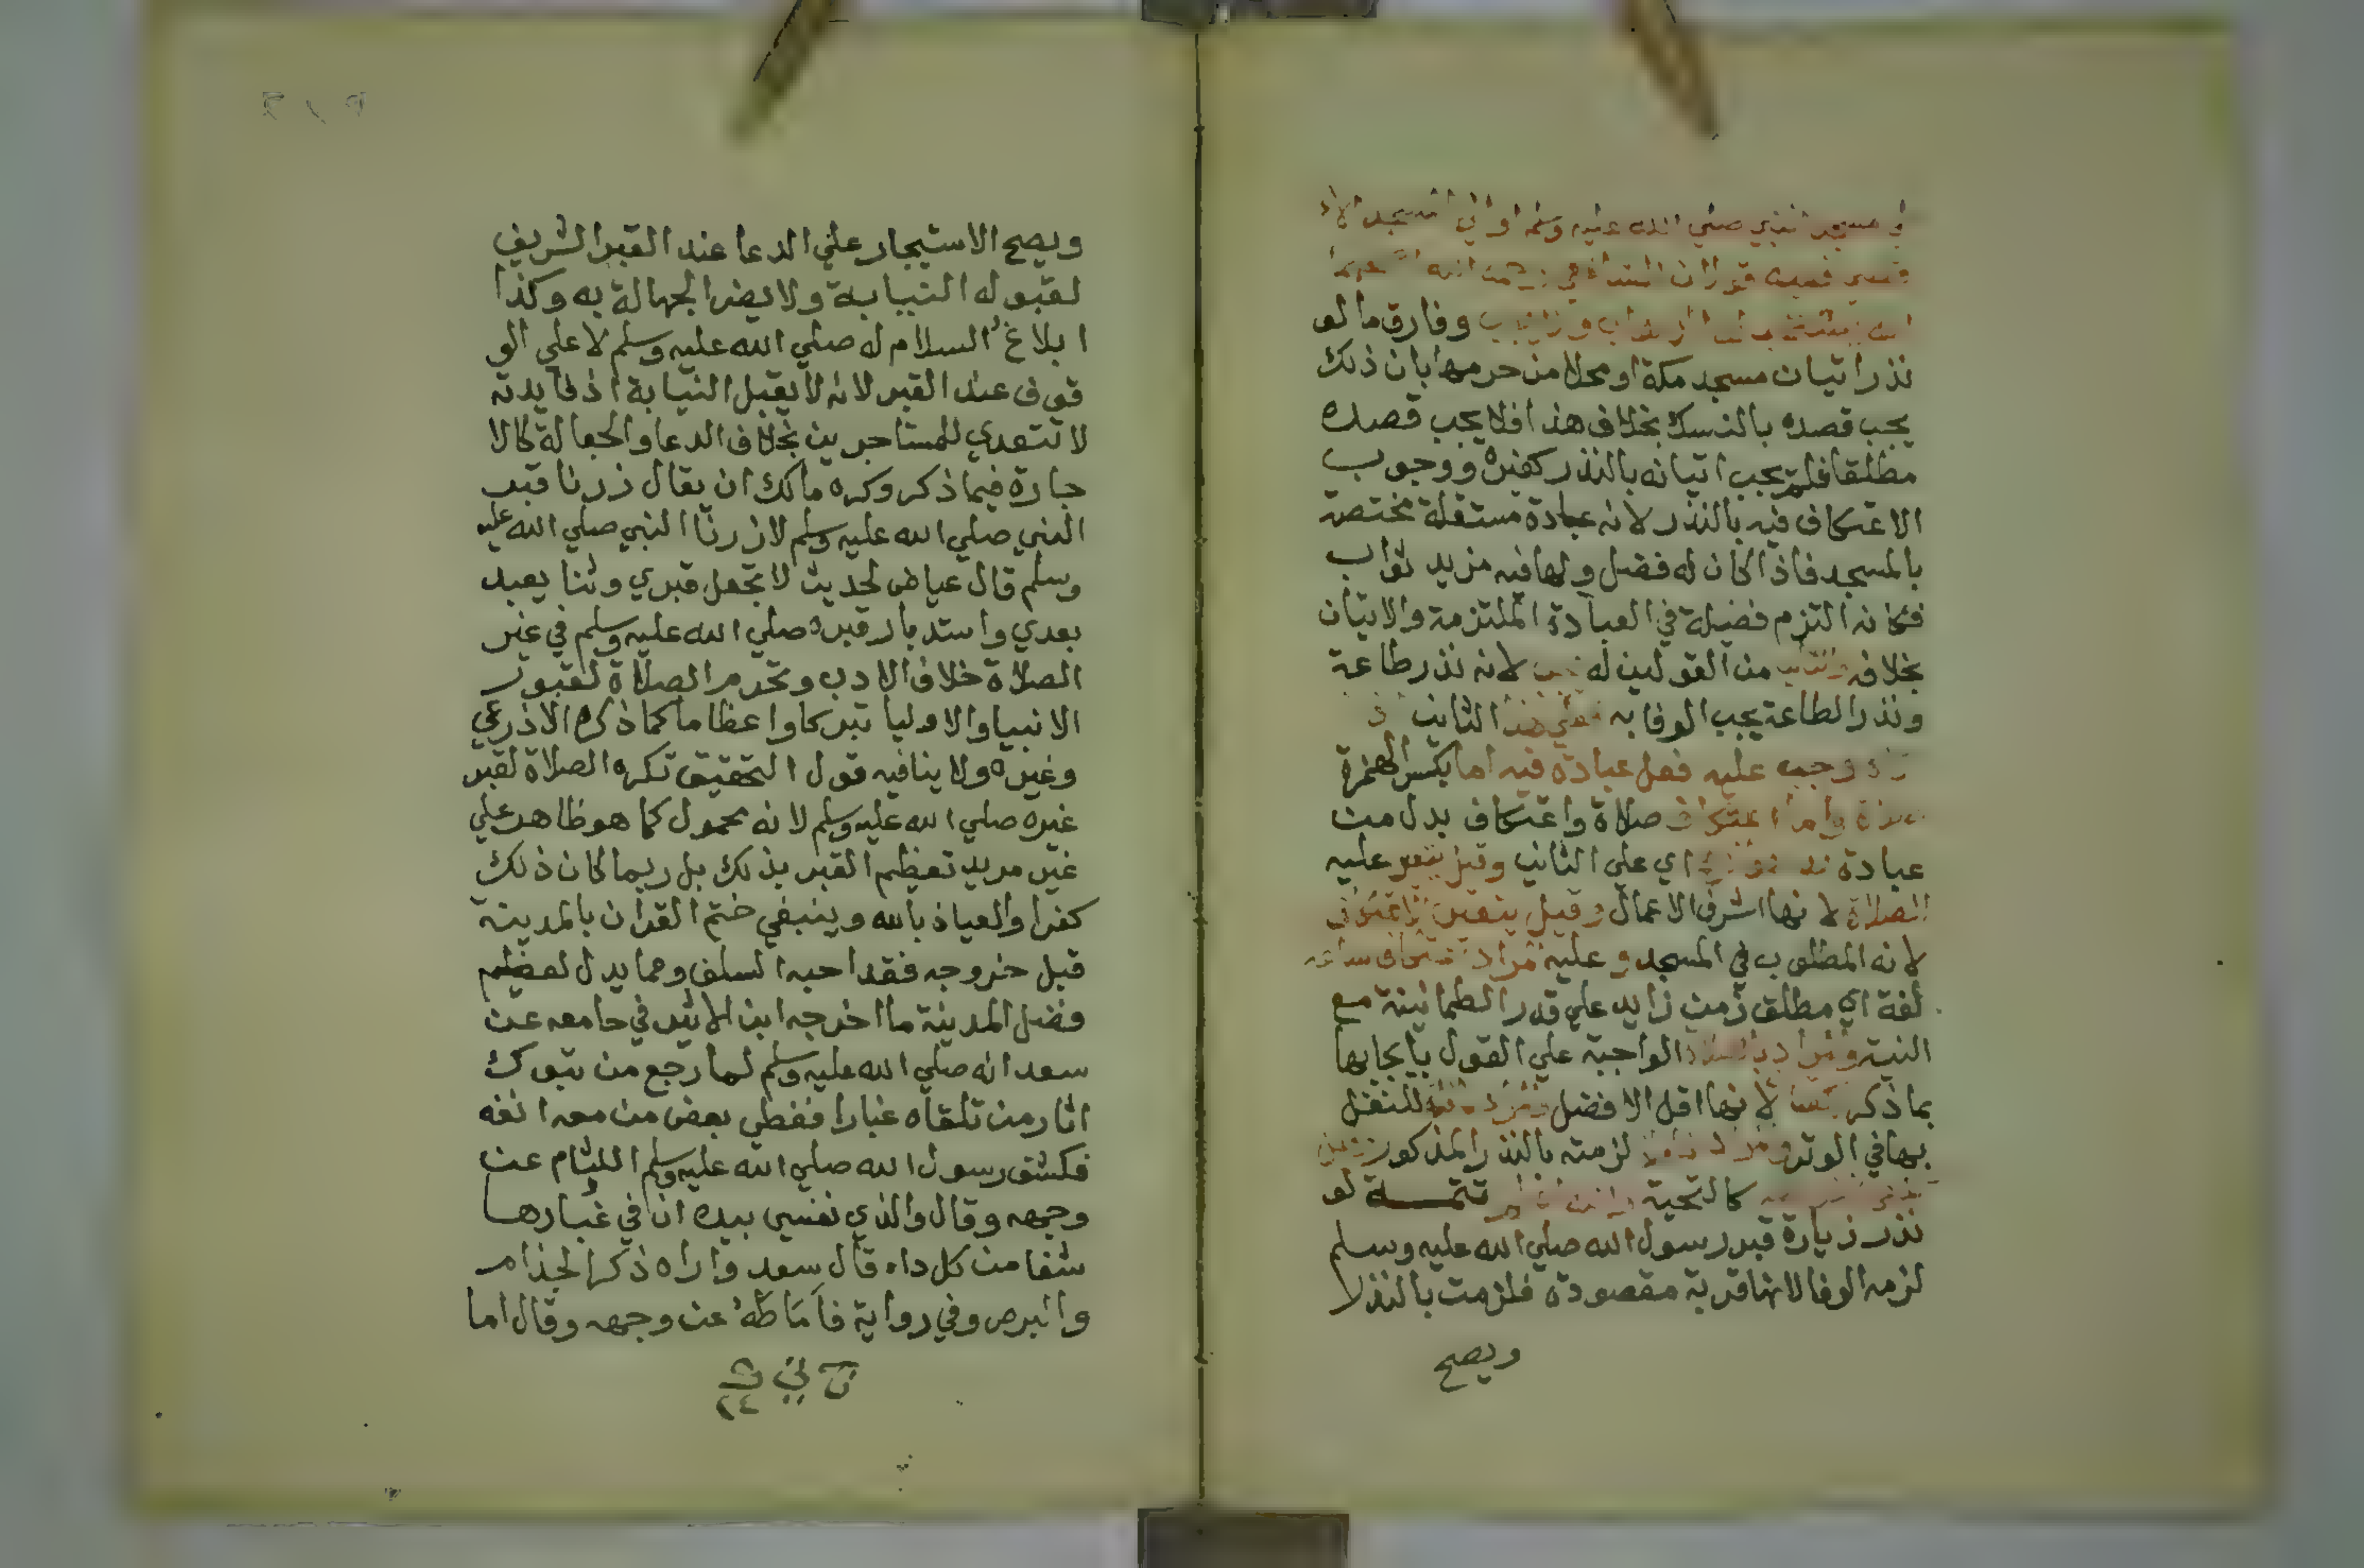 في مسجد النبي صلي الله عليه وسلم او في المسجد الا
وفارق ما لو
نذر اتيان مسجد مكة او محلا من حرمها بان ذلك
يجب قصده بالنسك بخلاف هذا فلا يجب قصده
مطلقا فلم يجب اتيانه بالنذر كغيره ووجوب
الاعتكاف فيه بالنذر لانه عبادة مستقلة مختصة
بالمسجد فاذا كان له فضل ولها فيه مزيد ثواب
فكانه التزم فضيلة في العبادة الملتزمة والاتيان
بخلافه من القولين له لانه نذر طاعة
ونذر الطاعة يجب الوفا به فعلي هذا الثاني
وجب عليه فعل عبادة فيه اما بكسر الهمزة
صلاة واما اعتكاف صلاة واعتكاف بدل من
عبادة اي علي الثاني وقيل يتعين عليه
الصلاة لانها اشرف الاعمال وقيل يتعين الاعتكاف
لانه المطلوب في المسجد وعليه فزاد اعتكاف ساعة
لغة اي مطلق زمن زايد علي قدر الطمانينة مع
النية الواجبة علي القول بايجابها
بما ذكر لانها اقل الافضل للتنفل
بها في الوتر لزمته بالنذر المذكور
كالتحية تتمة لو
نذر زيارة قبر رسول الله صلي الله عليه وسلم
لزمه الوفا لانها قربة مقصودة فلزمت بالنذر
ويصح
ويصح الاستيجار علي الدعا عند القبر الشريف
لقبوله النيابة ولا يضر الجهالة به وكذا
ابلاغ السلام له صلي الله عليه وسلم لا علي الو
قوف عند القبر لانه لا يقبل النيابة اذ فايدته
لا تتعدي للمستاجرين بخلاف الدعا والجعالة كالا
جارة فيما ذكر وكره مالك ان يقال زرنا قبر
النبي صلي الله عليه وسلم لا زرنا النبي صلي الله عليه
وسلم قال عياض لحديث لا تجعل قبري وثنا يعبد
بعدي واستدبار قبره صلي الله عليه وسلم في غير
الصلاة خلاف الادب وتحرم الصلاة لقبور
الانبيا والاوليا تبركا واعظاما كما ذكره الاذرعي
وغيره ولا ينافيه قول التحقيق تكره الصلاة لقبر
غيره صلي الله عليه وسلم لانه محمول كما هو ظاهر علي
غير مريد تعظيم القبر بذلك بل ربما كان ذلك
كفرا والعياذ بالله وينبغي ختم القران بالمدينة
قبل خروجه فقد احبه السلف ومما يدل لعظيم
فضل المدينة ما اخرجه ابن الاثير في جامعه عن
سعد انه صلي الله عليه وسلم لما رجع من تبوك
اثار من تلقاه غبارا فغطي بعض من معه انفه
فكشف رسول الله صلي الله عليه وسلم اللثام عن
وجهه وقال والذي نفسي بيده ان في غبارها
شفا من كل داء قال سعد واراه ذكر الجذام
والبرص وفي رواية فاَمَاطَهُ عن وجهه وقال اما